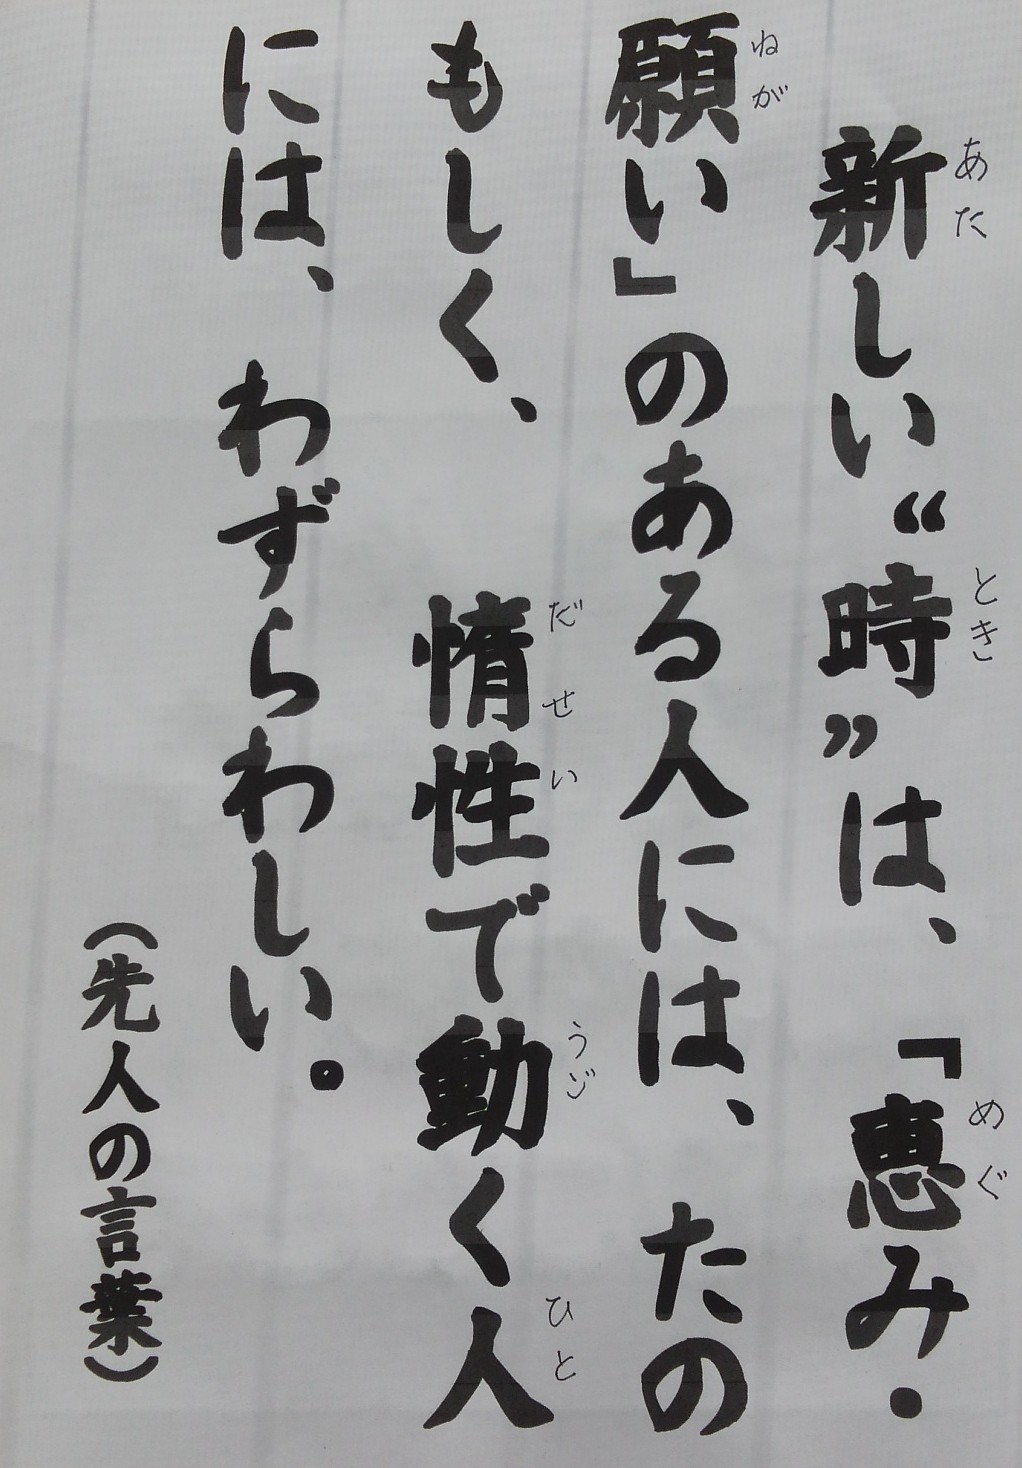 新しい“時”は、「恵み・
願い」のある人には、たの
もしく、惰性で動く人
には、わずらわしい。
(先人の言葉)
あた
とき
めぐ
ねが
だせい
うご
ひと